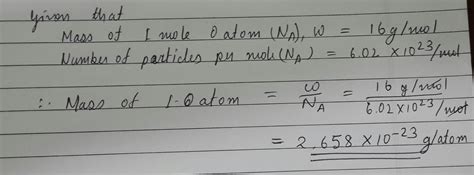 Given that
Mass of 1 mole O atom (NA), W = 16 g/mol
Number of particles per mole (NA) = 6.02 × 10²³/mol
∴ Mass of 1-O atom = ω/NA = 16 g/mol / 6.02×10²³/mol
= 2.658 × 10⁻²³ g/atom